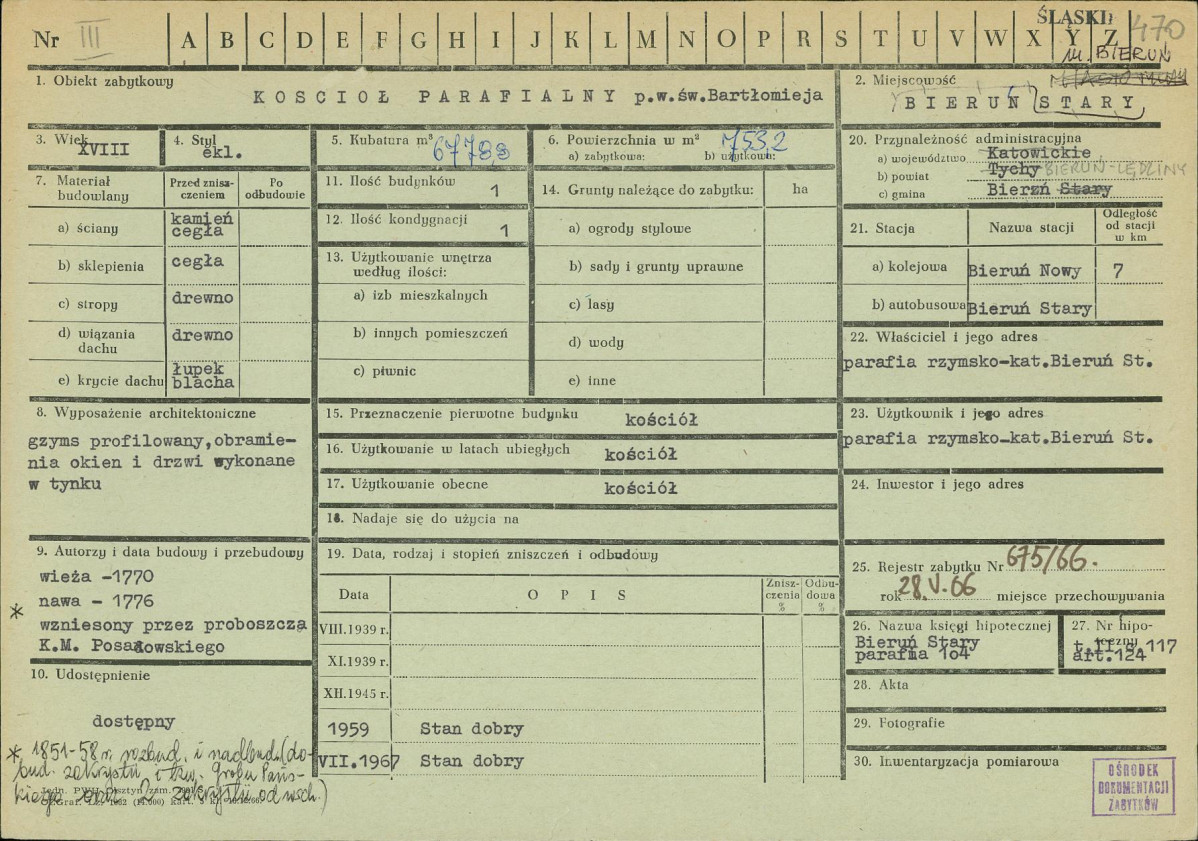 Nr III A B C D E F G H I J K L M N O P R S T U V W X Y Z
ŚLĄSKI
470
m. BIERUŃ
1. Obiekt zabytkowy
KOSCIOŁ PARAFIALNY p.w.św.Bartłomieja
2. Miejscowość
BIERUŃ STARY
3. Wiek
XVIII
4. Styl
ekl.
5. Kubatura m³
6. Powierzchnia w m²
753,2
a) zabytkowa: b) użytkowa:
7. Materiał
budowlany
Przed znisz-
czeniem
Po
odbudowie
a) ściany
kamień
cegła
b) sklepienia cegła
c) stropy drewno
d) wiązania
dachu
drewno
e) krycie dachu
łupek
blacha
8. Wyposażenie architektoniczne
gzyms profilowany,obramie-
nia okien i drzwi wykonane
w tynku
9. Autorzy i data budowy i przebudowy
wieża -1770
nawa - 1776
* wzniesony przez proboszcza
K.M. Posadowskiego
10. Udostępnienie
dostępny
* 1851-58 r. rozbud. i nadbud. (do-
bud. zakrystii i tzw. Grobu Pańs-
kiego oraz 2 zakrystii od wsch.)
11. Ilość budynków 1
12. Ilość kondygnacji
1
13. Użytkowanie wnętrza
według ilości:
a) izb mieszkalnych
b) innych pomieszczeń
c) piwnic
14. Grunty należące do zabytku: ha
a) ogrody stylowe
b) sady i grunty uprawne
c) lasy
d) wody
e) inne
15. Przeznaczenie pierwotne budynku kościół
16. Użytkowanie w latach ubiegłych kościół
17. Użytkowanie obecne kościół
18. Nadaje się do użycia na
19. Data, rodzaj i stopień zniszczeń i odbudowy
Data OPIS
Znisz-
czenia
%
Odbu-
dowa
%
VIII.1939 r.
XI.1939 r.
XII.1945 r.
1959 Stan dobry
VII.1967 Stan dobry
20. Przynależność administracyjna
a) województwo Katowickie
b) powiat Tychy BIERUŃ-LĘDZINY
c) gmina Bierzń Stary
21. Stacja Nazwa stacji
Odległość
od stacji
w km
a) kolejowa Bieruń Nowy 7
b) autobusowa Bieruń Stary
22. Właściciel i jego adres
parafia rzymsko-kat.Bieruń St.
23. Użytkownik i jego adres
parafia rzymsko-kat.Bieruń St.
24. Inwestor i jego adres
25. Rejestr zabytku Nr 675/66.
rok 28.V.66 miejsce przechowywania
26. Nazwa księgi hipotecznej
Bieruń Stary
parafia 104
27. Nr hipo-
teczny
t.II s.117
art.124
28. Akta
29. Fotografie
30. Inwentaryzacja pomiarowa
OŚRODEK
DOKUMENTACJI
ZABYTKÓW